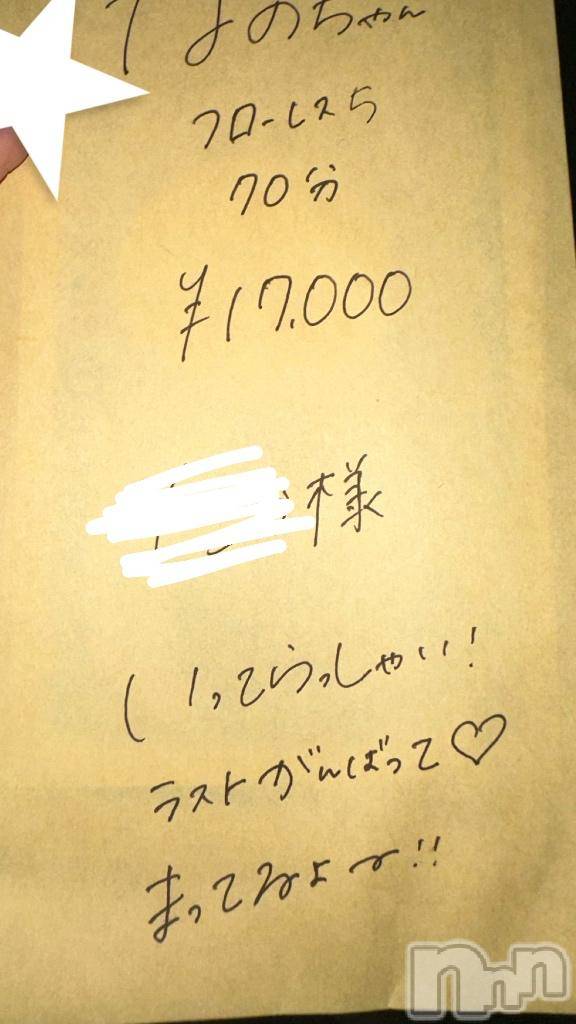 よのちゃん
フローレス5
70分
¥17.000
様
いってらっしゃい!
ラストがんばって♡
まってるよ〜!!
nnn